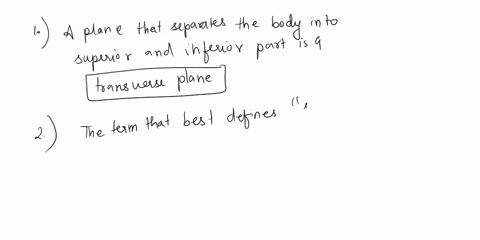 1.) A plane that separates the body into
superior and inferior part is a
transverse plane
2.) The term that best defines "